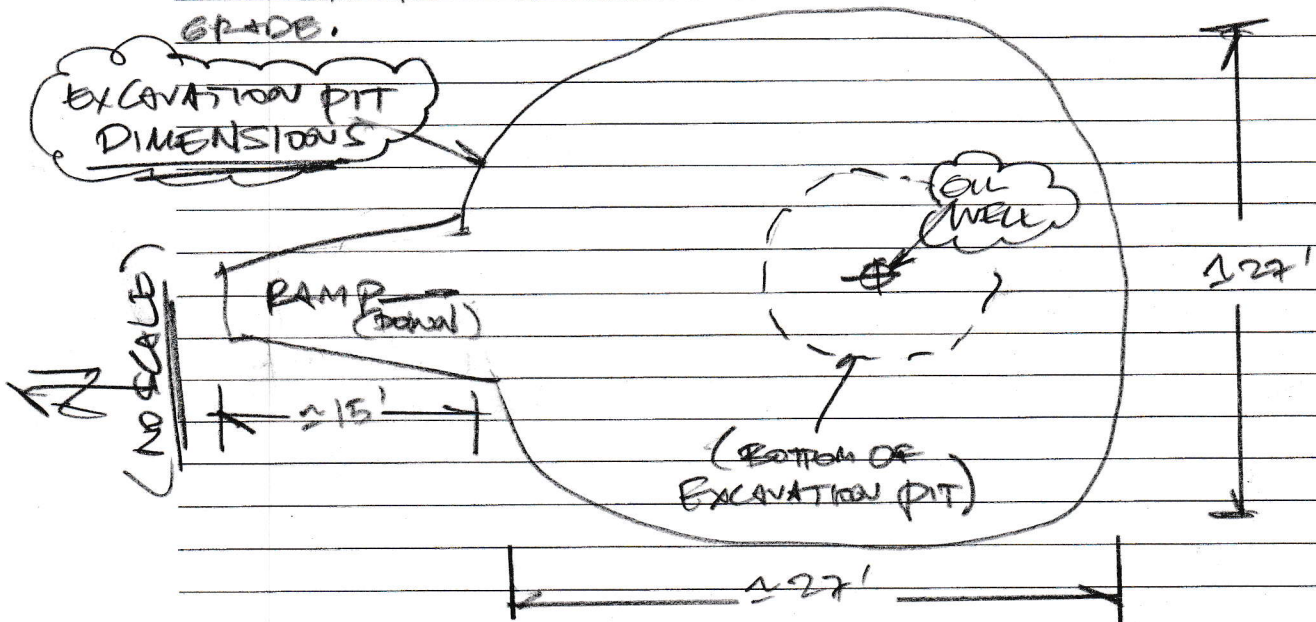 GRADE.
EXCAVATION PIT
DIMENSIONS
OIL
WELL
~27'
RAMP
(DOWN)
(NO SCALE)
N
~15'
(BOTTOM OF
EXCAVATION PIT)
~27'